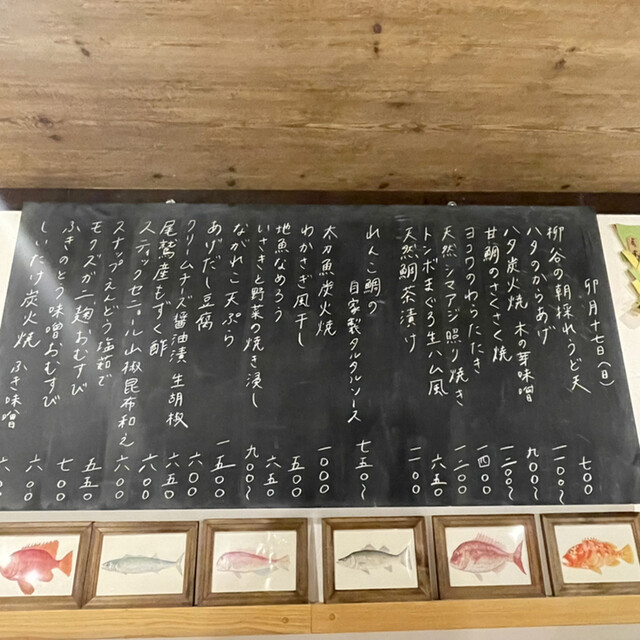 卯月十七日(日)
柳谷の朝採れうど天 七〇〇
ハタのからあげ 一一〇〇〜
ハタ炭火焼 木の芽味噌 九〇〇〜
甘鯛のさくさく焼 一二〇〇〜
ヨコワのわらたたき 一四〇〇
天然シマアジ照り焼き 一二〇〇
トンボまぐろ生ハム風 六五〇
天然鯛茶漬け 一一〇〇
れんこ鯛の
自家製タルタルソース 七五〇〜
太刀魚炭火焼 一〇〇〇
わかさぎ風干し 五〇〇
地魚なめろう 六五〇
いさきと野菜の焼き浸し 九〇〇〜
ながれこ天ぷら 一五〇〇
あげだし豆腐 六〇〇
クリームチーズ醤油漬 生胡椒 六〇〇
尾鷲産もずく酢 六〇〇
スティックセニョール山椒昆布和え 六〇〇
スナップえんどう塩茹で 五五〇
モクズガニ麹おむすび 七〇〇
ふきのとう味噌おむすび 六〇〇
しいたけ炭火焼 ふき味噌 六〇〇